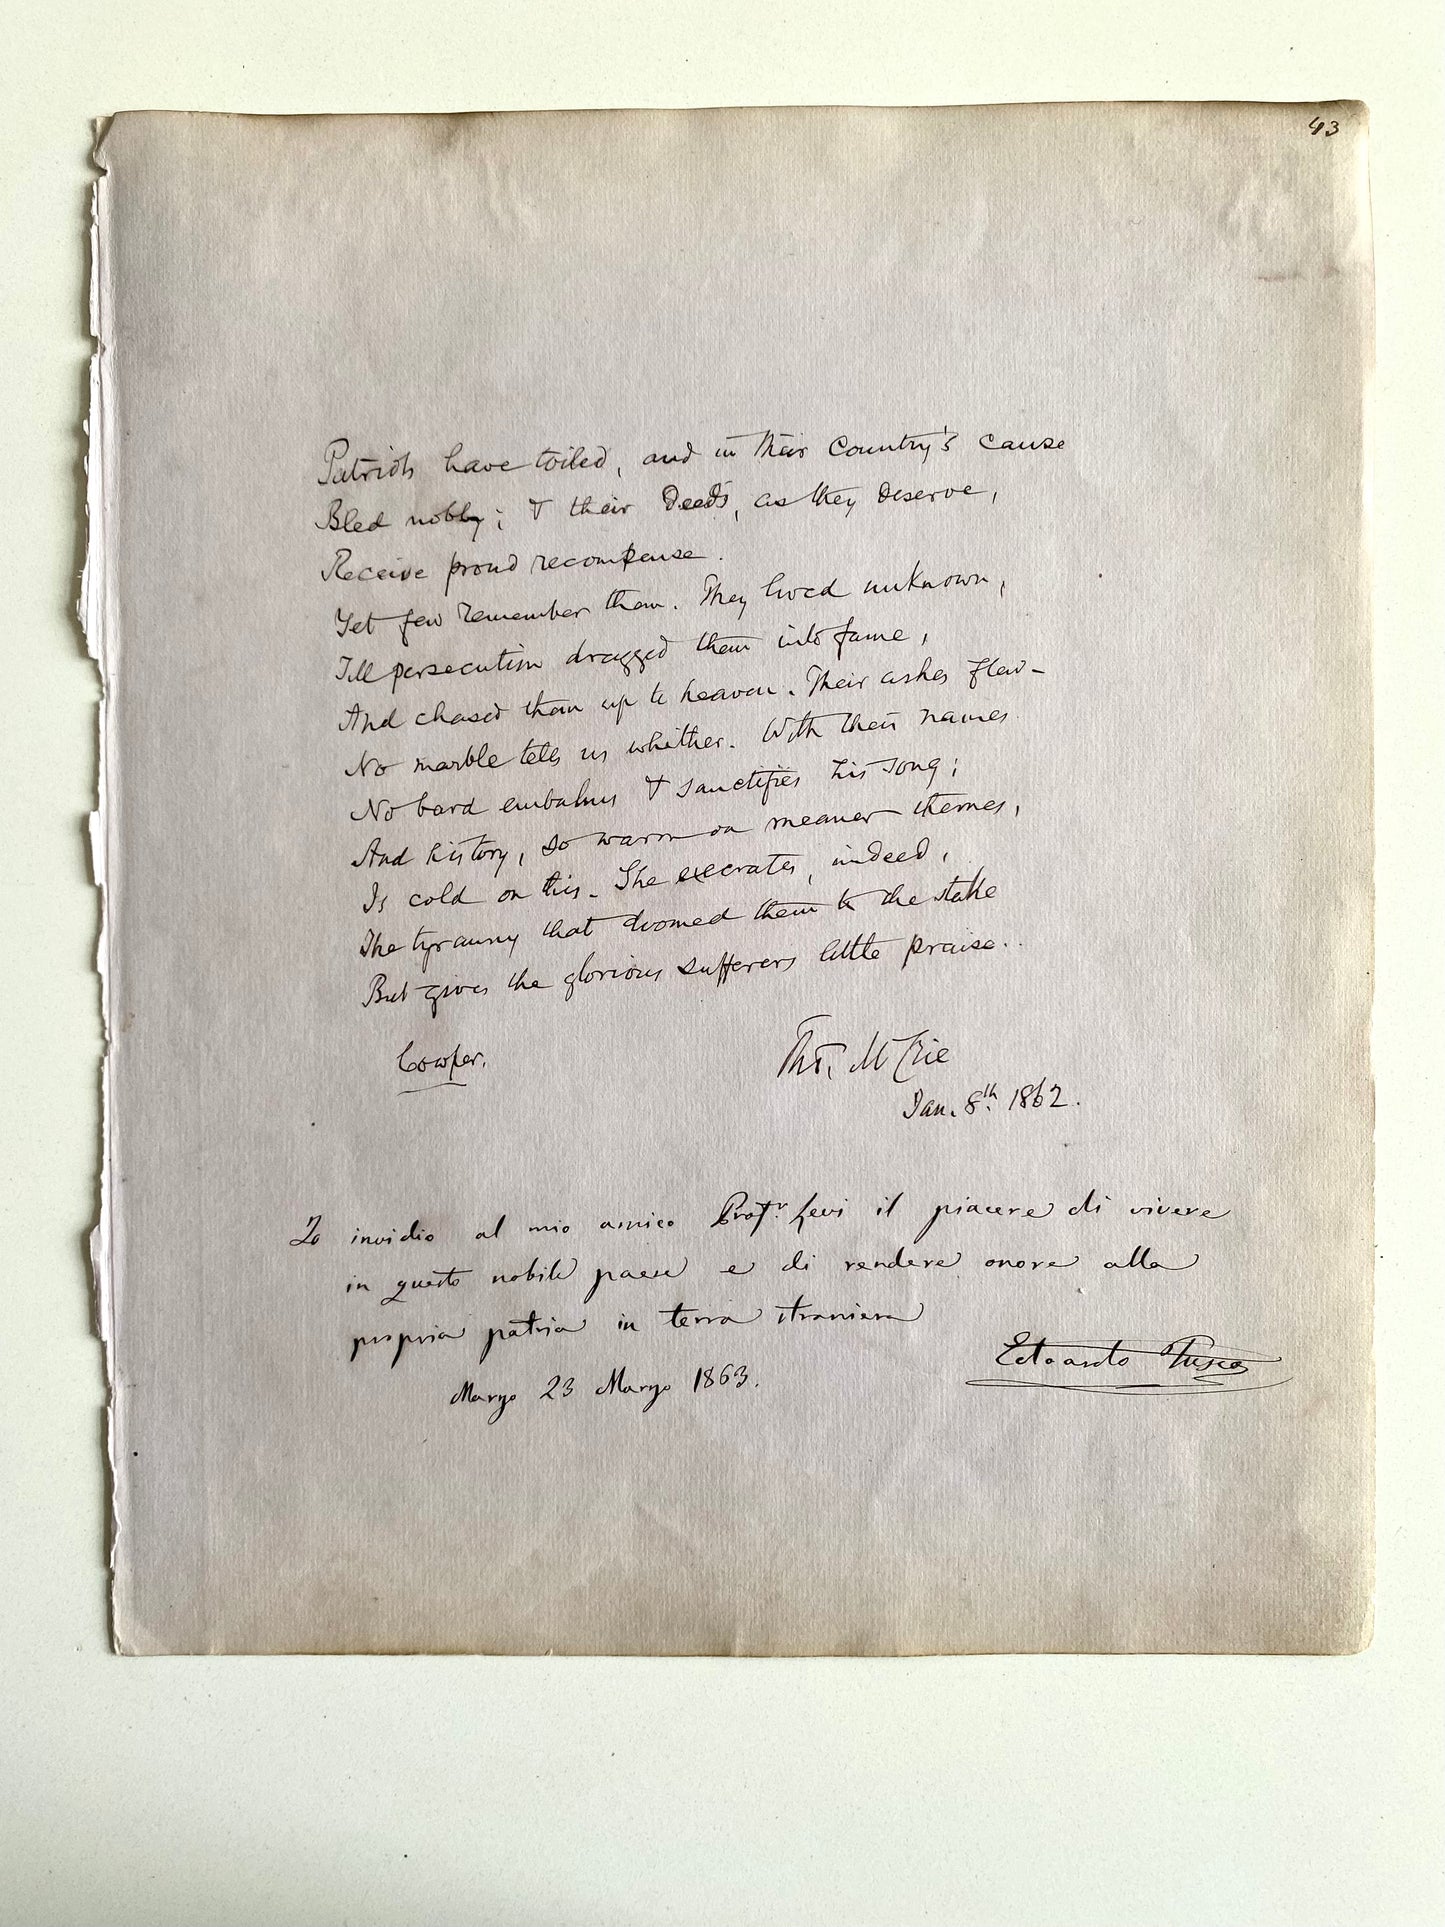 43
Patriots have toiled, and in their Country's cause
Bled nobly; & their deeds, as they deserve,
Receive proud recompense.
Yet few remember them. They lived unknown,
Till persecution dragged them into fame,
And chased them up to heaven. Their ashes flew –
No marble tells us whither. With their names
No bard embalms & sanctifies his song;
And history, so warm on meaner themes,
Is cold on this. She execrates, indeed,
The tyranny that doomed them to the stake
But gives the glorious sufferers little praise..
Cowper.
Thos. McCrie
Jan. 8th. 1862.
Io invidio al mio amico Profr. Levi il piacere di vivere
in questo nobile paese e di rendere onore alla
propria patria in terra straniera
Edoardo
Marzo 23 Marzo 1863.